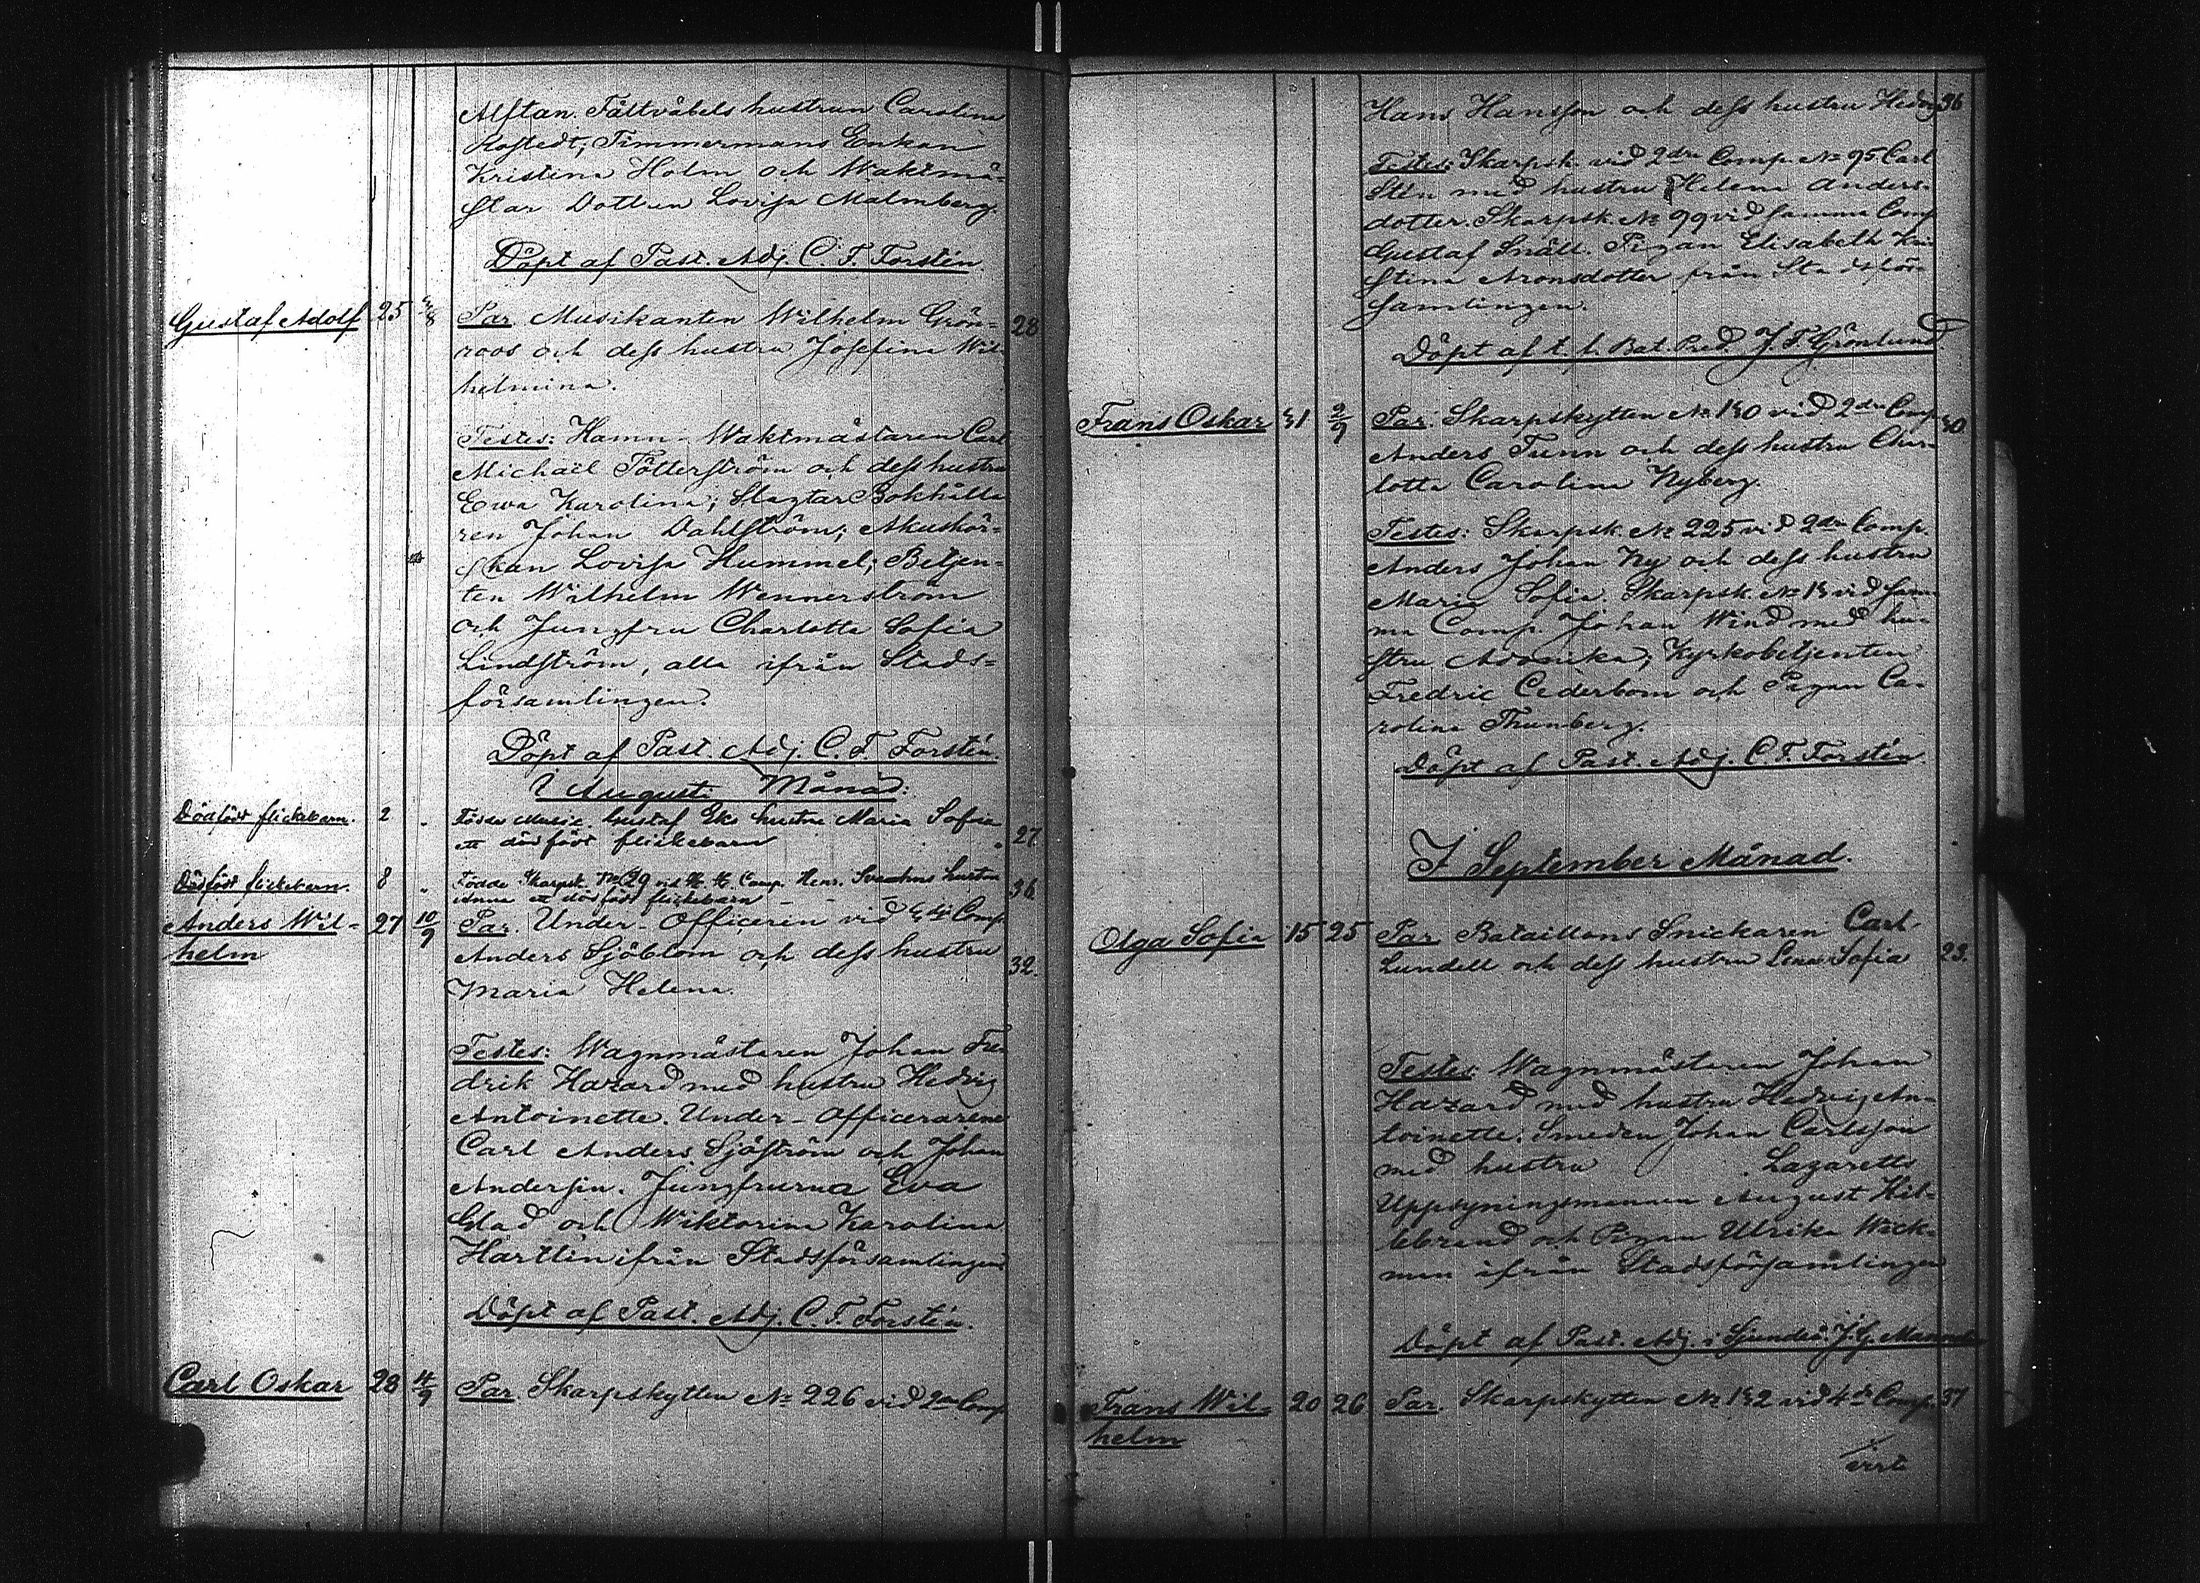 Alftan. Fältväbels hustrun Carolina
Timmermans Enkan
Kristina Holm och Waktmä-
star Dottren Lovisa Malmberg.
Döpt af Past. Adj. C. F. Forstén.
Gustaf Adolf 25 Par. Musikanten Wilhelm Grön- 28
roos och dess hustru Josefina Wil-
helmina.
Testes: Hamn-Waktmästaren Carl
Michaël Tötterström och dess hustru
Ewa Karolina; Slagtar Bokhålla
ren Johan Dahlström; Akushör-
skan Lovisa Hummel; Betjen-
ten Wilhelm Wennerström
och Jungfru Charlotta Sofia
Lindström, alla ifrån Stads-
församlingen.
Döpt af Past. Adj. C. F. Forstén.
I Augusti Månad:
Dödfödt flickebarn. 2 " Födde Music Gustaf Eks hustru Maria Sofia
ett dödfödt flickebarn 27
Dödfödt flickebarn. 8 " Födde Skarpsk. No 29 vid Comp. Henr. Svahns hustru
Anna ett dödfödt flickebarn 36
Anders Wil- 27 10/9 Par. Under-Officeren vid Comp
helm Anders Sjöblom och dess hustru 32.
Maria Helena.
Testes: Wagnmästaren Johan Fre-
drik Hazard med hustru Hedvig
Antoinette. Under-Officerarene
Carl Anders Sjöström och Johan
Andersin. Jungfrurna Eva
Glad och Wiktorina Karolina
Hartlin ifrån Stadsförsamlingen
Döpt af Past. Adj. C. F. Forstén.
Carl Oskar 28 4/9 Par Skarpskytten No 226 vid 2dra Comp
Hans Hansson och dess hustru Hedvig 36
Testes: Skarpsk. vid 2dra Comp. No 95 Carl
Stén med hustru Helena Anders-
dotter. Skarpsk. No 99 vid samma Comp
Gustaf Snäll. Pigan Elisabeth Kri-
stina Aronsdotter från Stadsför-
samlingen.
Döpt af t. f. Bat. Pred J. F. Grönlund
Frans Oskar 31 2/9 Par. Skarpskytten No 130 vid 2dra Comp 30
Anders Tunn och dess hustru Char-
lotta Carolina Nyberg.
Testes: Skarpsk. No 225 vid 2dra Comp.
Anders Johan Ny och dess hustru
Maria Sofia. Skarpsk. No 13 vid sam-
ma Comp. Johan Wind med hu-
stru Kyrkobetjenten
Fredric Cederbom och Pigan Ca-
rolina Thunberg.
Döpt af Past. Adj. C. F. Forstén.
I September Månad.
Olga Sofia 15 25 Par Bataillons Snickaren Carl
Lundell och dess hustru Lena Sofia 23.
Testes Wagnmästaren Johan
Hazard med hustru Hedvig An-
toinette. Smeden Johan Carlsson
med hustru Lazaretts
Uppsyningsmannen August Hil-
lebrand och Pigan Ulrika Wick-
man ifrån Stadsförsamlingen
Döpt af Past. Adj. i Sjundeå J. G.
Frans Wil- 20 26 Par. Skarpskytten No 132 vid 4de Comp. 37
helm
vert